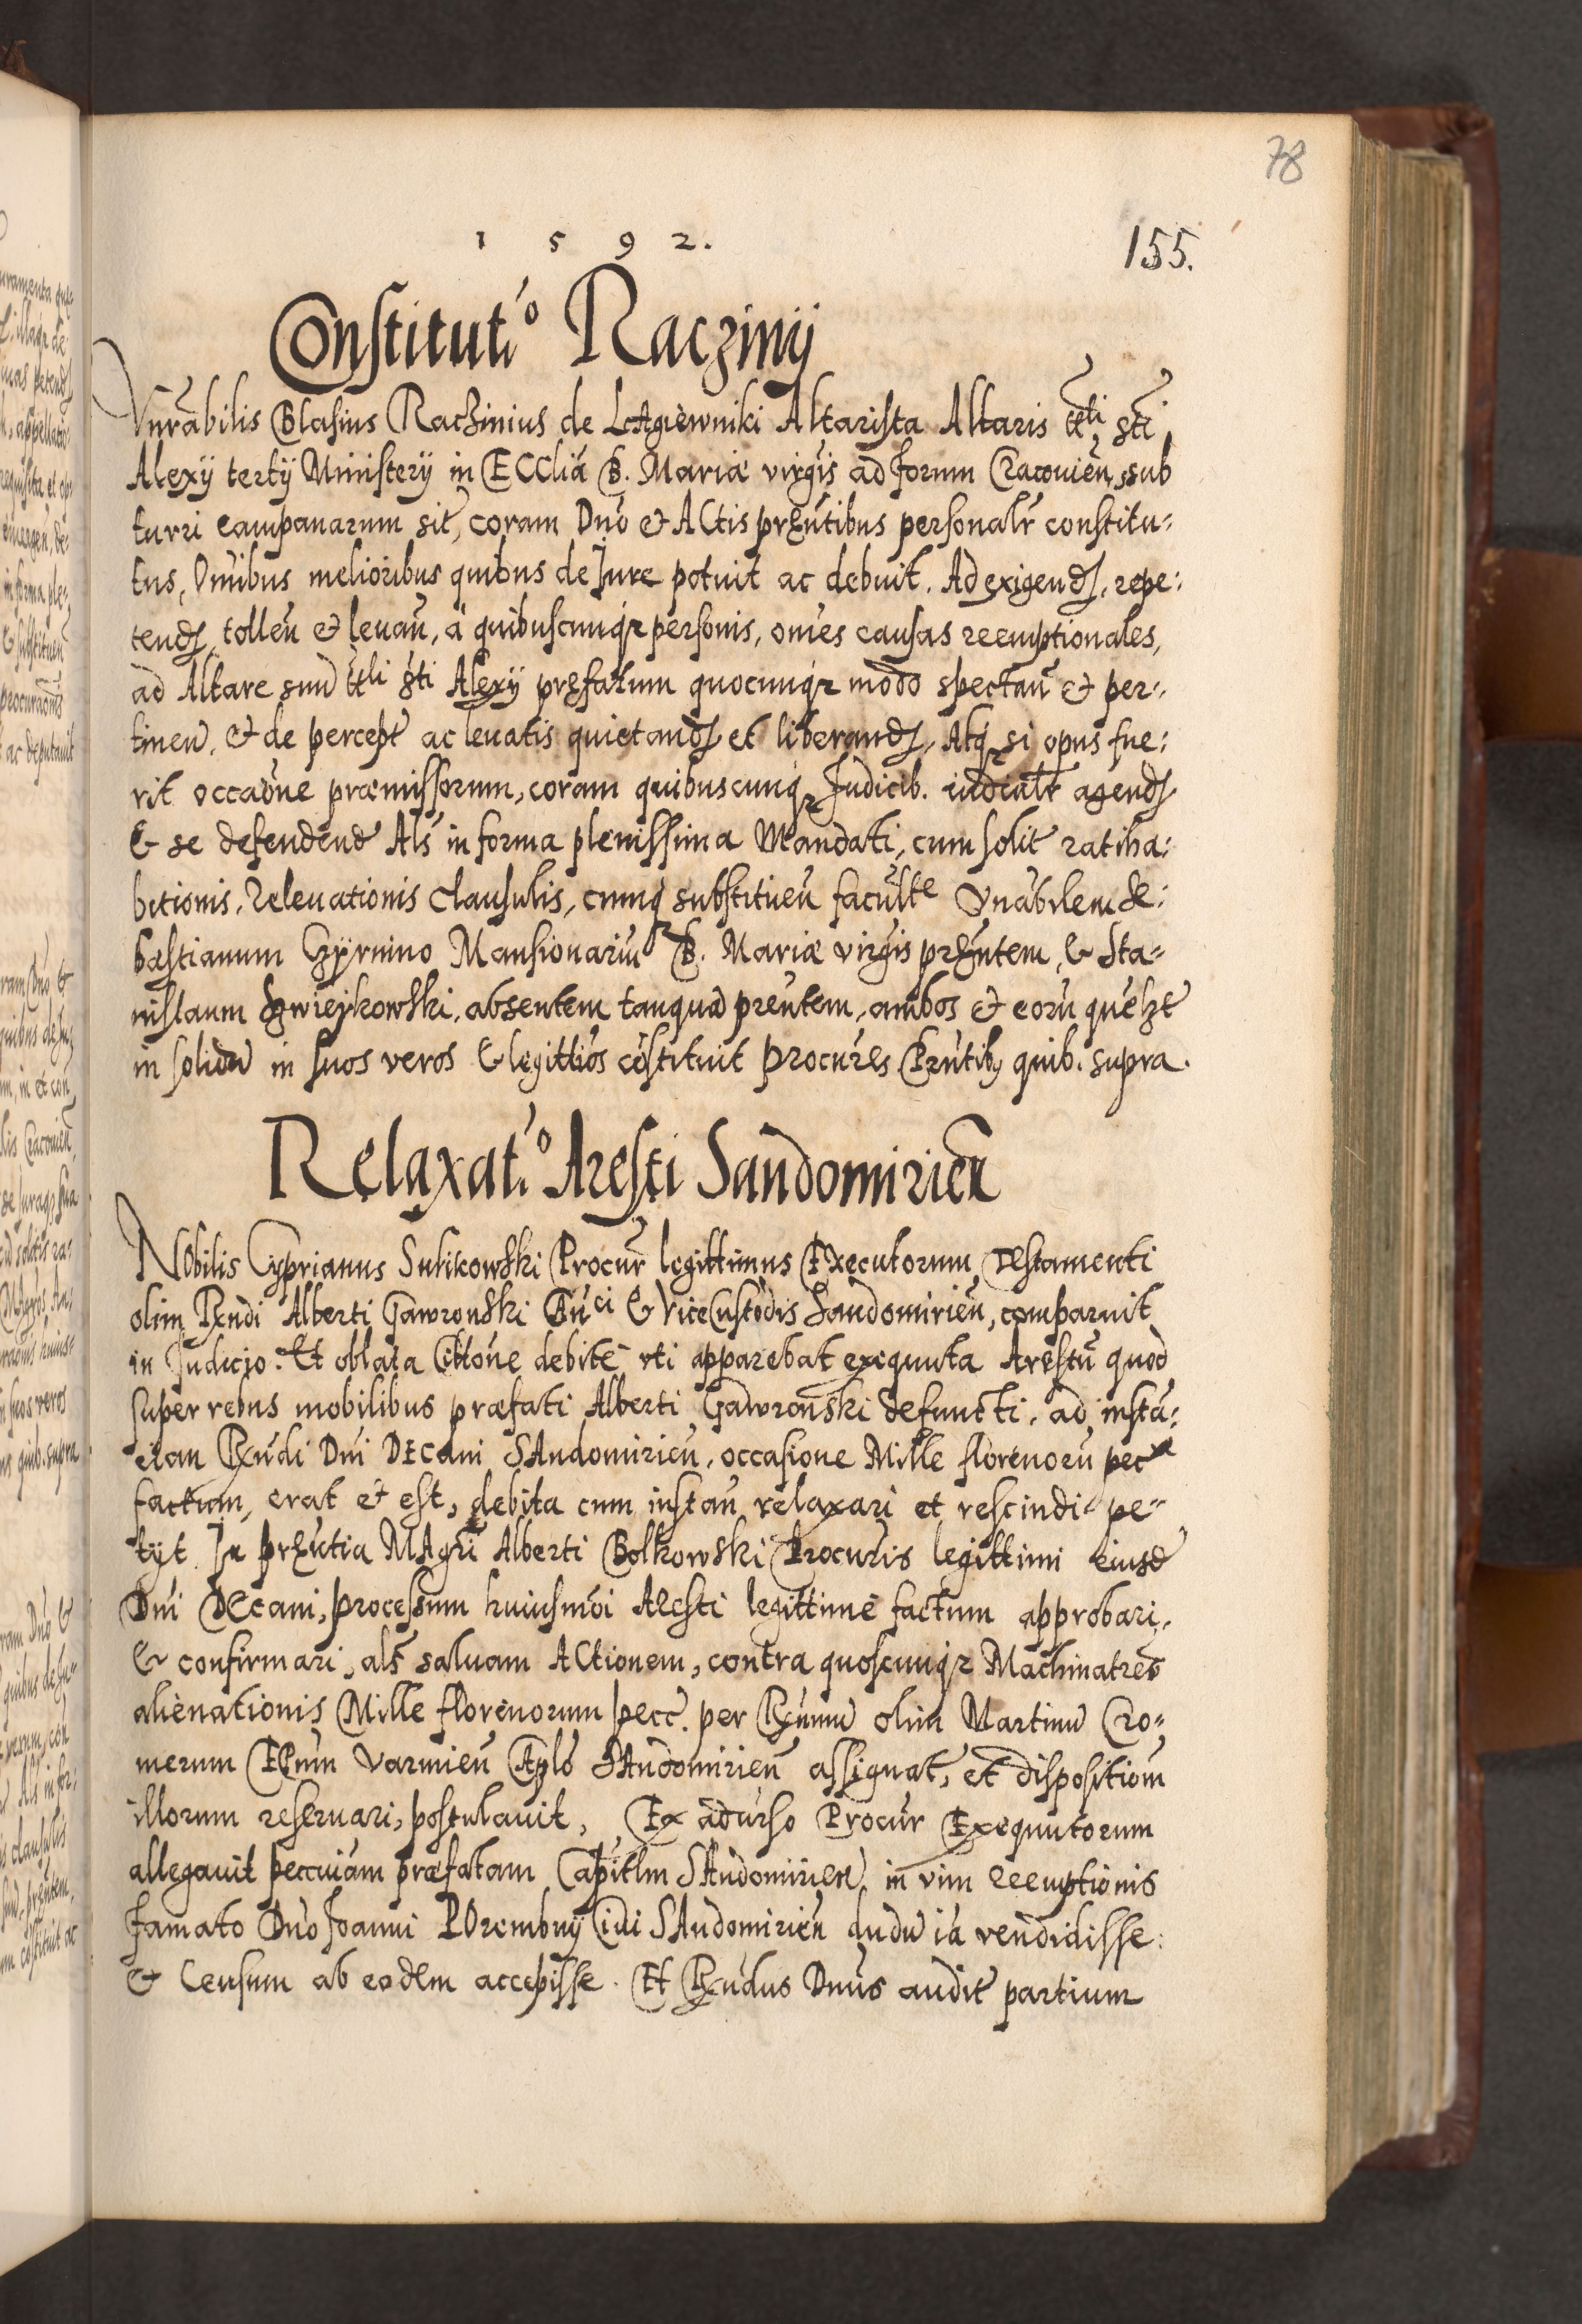 78
1592.
155.
Constitut͠o Raczinij
Vnrabilis Blasius Raczinius de LAgiewniki Altarista Altaris ttli sti
Alexij tertij Ministerij in ECCliã B. Mariæ virgis ad forum Cracouieñ, sub
turri campanarum sit, coram Dno et ACtis pręntibus personalr constitu-
tus, Omibus melioribus quibus de Jure potuit ac debuit. Ad exigend, repe-
tend, tolleñ et leuañ, a quibuscunqz personis, omes causas reemptionales,
ad Altare suũ ttli sti Alexij pręfatum quocunqz modo spectañ et per-
tineñ, et de percept ac leuatis quietand et liberand, Atqz si opus fue-
rit occaone præmissorum, coram quibuscunqz Judicib. iudicialr agend
& se defendend Als in forma plenissima Mandati, cum solit ratiha-
bitionis, Releuationis Clausulis, cumqz substitueñ facultte Vnabilem Se-
bastianum Mansionariũ B. Mariæ virgis pręntem, & Sta-
nislaum absentem tanquã prentem, ambos et eorũ quelzt
in solidũ in suos veros & legittios cõstituit Procures Prntibz quib. supra.
Relaxat͠o Aresti Sandomirieñ
NObilis Cyprianus Sulikowski Procur legittimus Executorum Testamenti
olim Rndi Alberti Gawronski & Vice Custodis Sandomirieñ, comparuit
in Judicio. Et oblata Cittone debite vti apparebat exequuta Arestũ quod
super rebus mobilibus præfati Alberti Gawronski defuncti, ad instã-
ciam Rndi Dni DEcani SAndomirieñ, occasione Mille florenorũ pec
factum, erat et est, debita cum instañ relaxari et rescindi pe-
tijt. In pręntia MAgri Alberti Bolkowski Procuris legittimi eiusd
Dni DEcani, processum huiusmoi Aresti legittime factum approbari,
& confirmari, als saluam ACtionem, contra quoscunqz Machinatres
alienationis Mille florenorum pecc. per Rnmũ olim Martinũ Cro-
merum EPum Varmieñ Cplo SAndomirieñ assignat, et dispositiom
illorum reseruari, postulauit, Ex adurso Procur Exequutorum
allegauit pecuiam præfatam Capitlm SAndomirieñ, in vim reemptionis
famato Dno Joanni POrembny Ciui SAndomirieñ dudũ iã vendidisse
et Censum ab eodem accepisse. Et Rndus Dnus audit partium